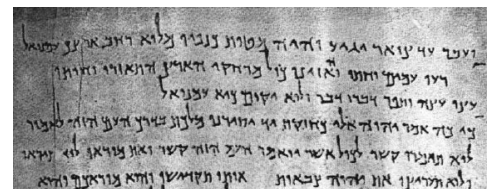 ועבר עד צואר יגיע והיה מטות כנפיו מלוא רחב ארצך עמנואל
עמים וחתו האזינו כול מרחקי הארץ וחתו
ותפר דברו דבר ולוא יקום כיא עמנואל
כי כה אמר יהוה אלי כחזקת יד יסירני מלכת בדרך העם הזה לאמור
לוא תאמרון קשר לכול אשר יואמר העם הזה קשר ואת מוראו לוא תיראו
ולוא תעריצו את יהוה צבאות אותו תקדישו והוא מוראכם והוא